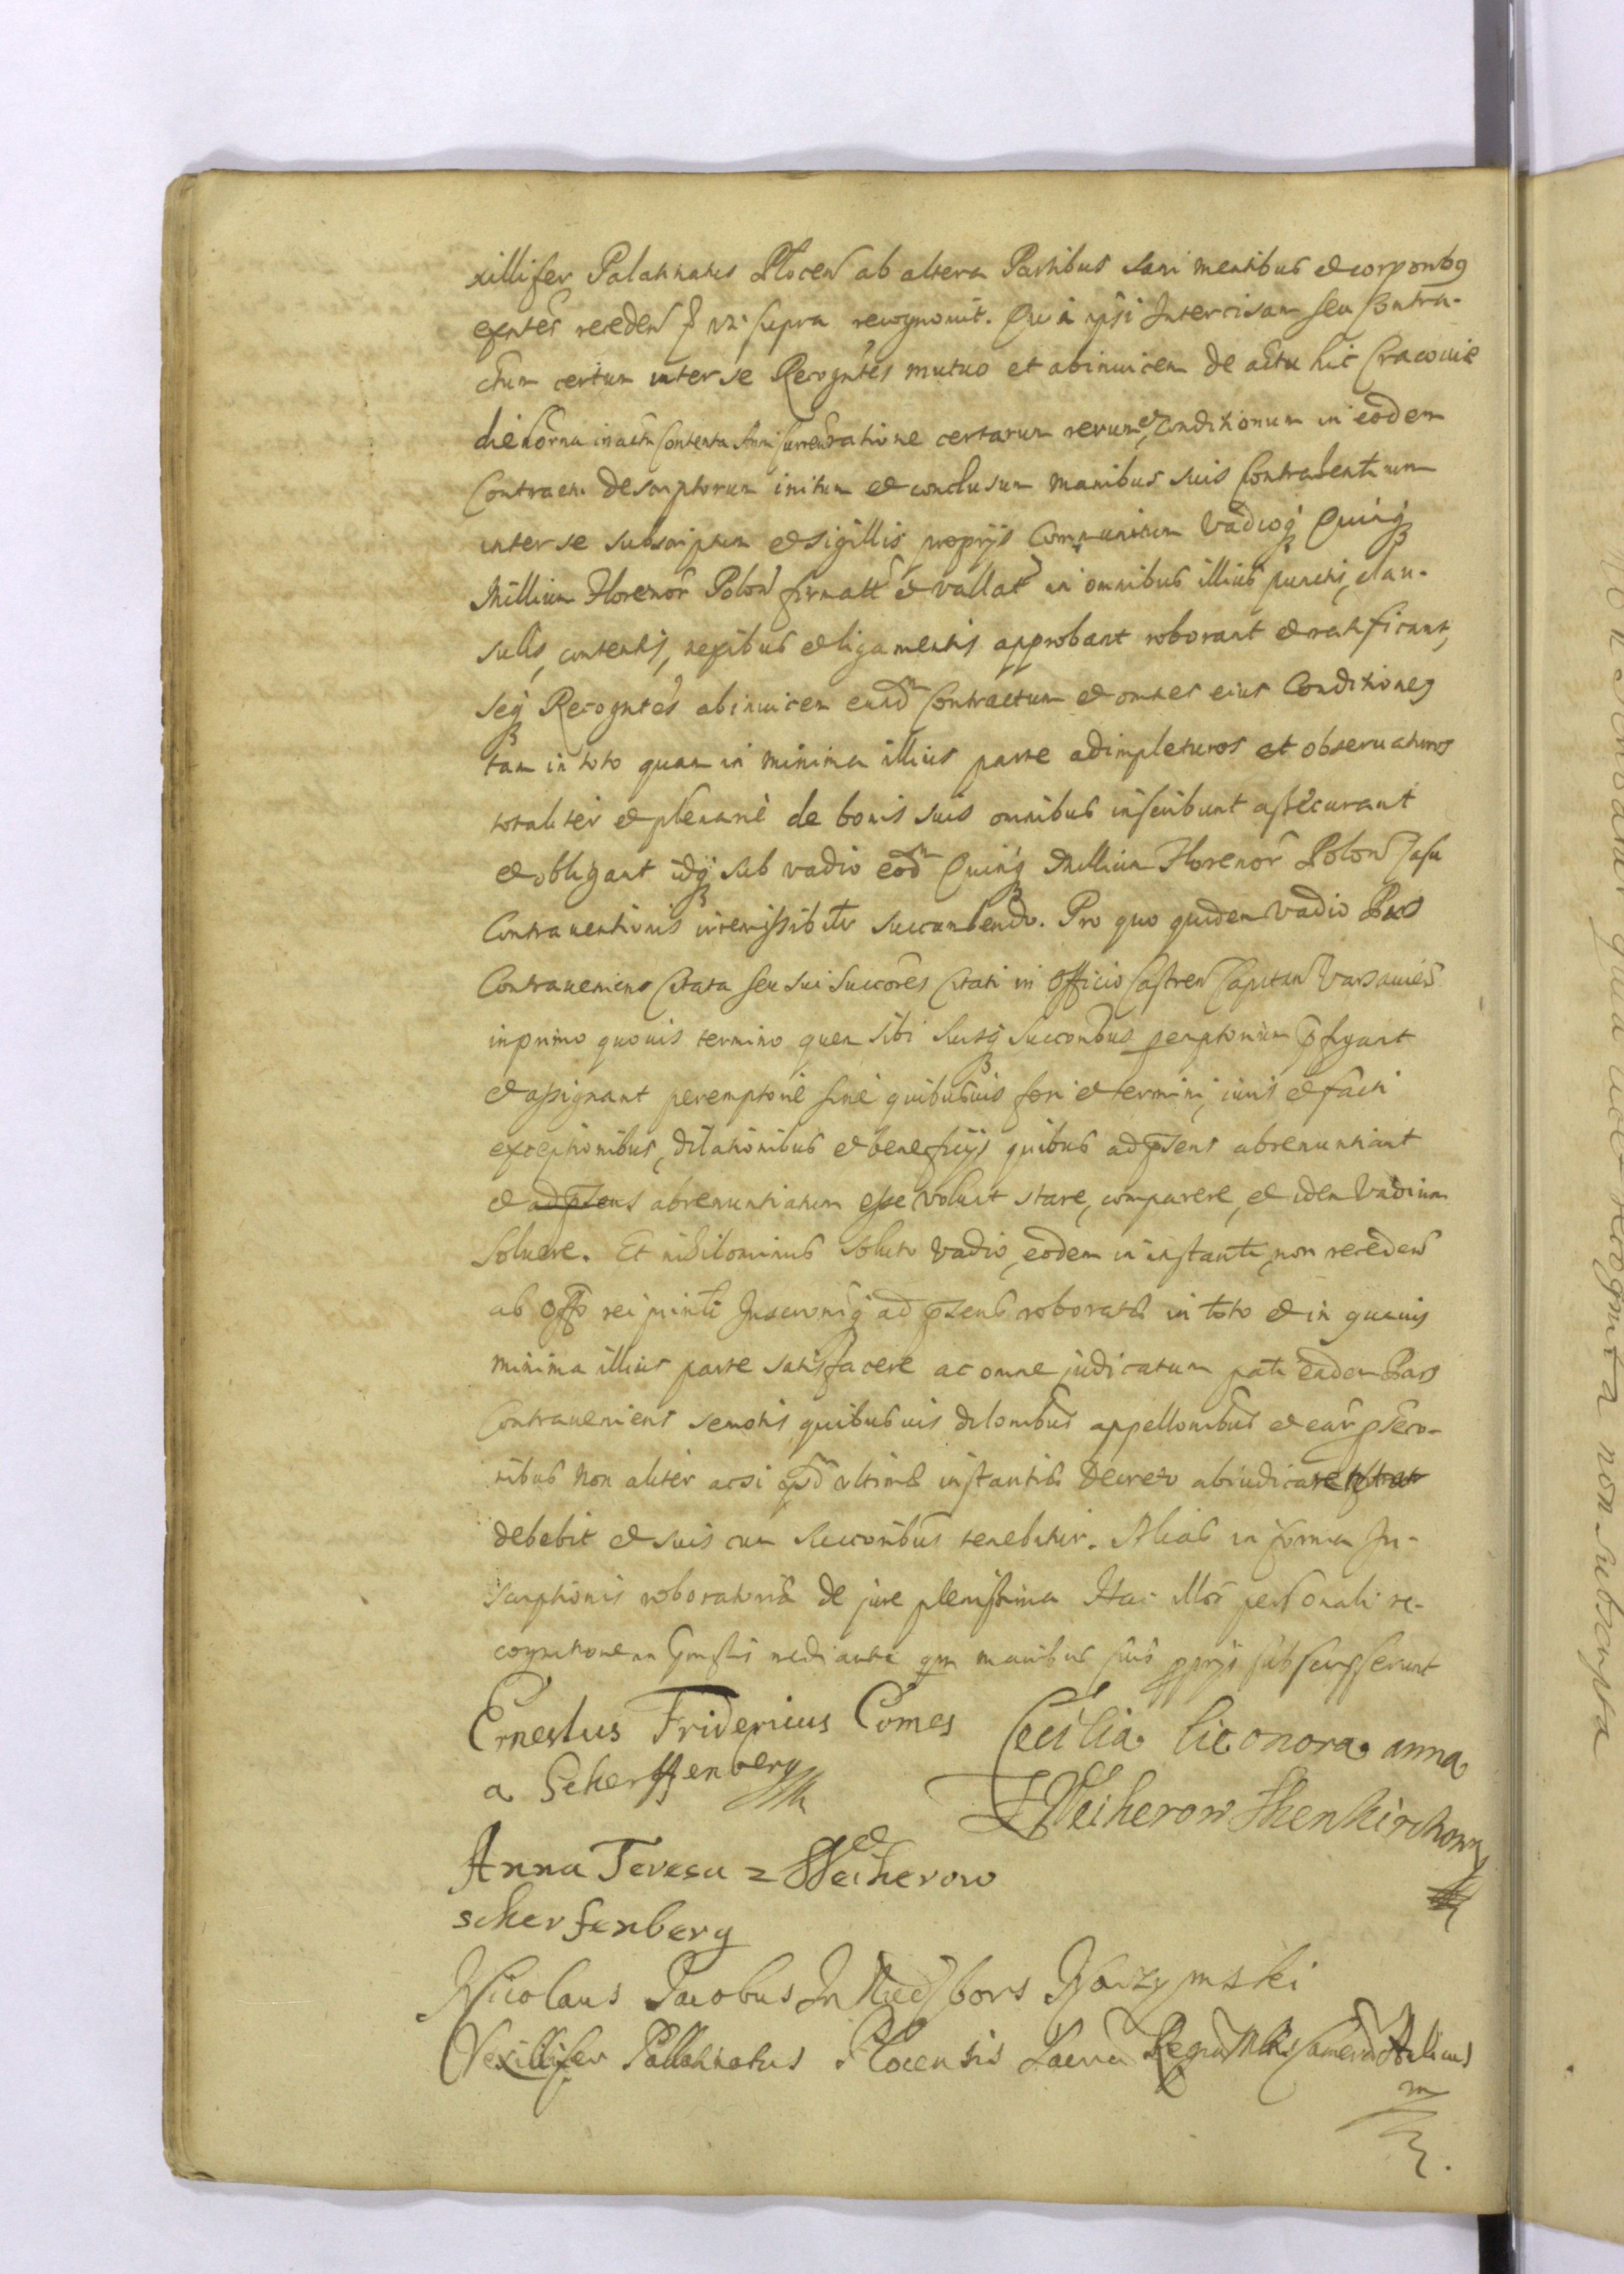 xillifer Palatinatus Plocen ab altera Partibus sani mentibus et corporibg
exntes receden ut supra recognovit. Quia ipsi Intercisam seu Contra-
ctum certum inter se Recogntes mutuo et abinuicem de actu hic Cracouie
die in actu Contenta Anni Curren ratione certarum rerum et Conditionum in eodem
Contractu descriptorum initum et conclusum manibus suis Contrahentium
inter se subscriptum et sigillis proprijs Communitum Vadioq Quinq
Millium Florenor Polon firmatt et vallat in omnibus illius punctis, clau-
sulis, contentis, nexibus et ligamentis approbant roborant et ratificant,
seq Recogntes abinuicem eund Contractum et omnes eius Conditiones
tam in toto quam in minima illius parte adimpleturos et obseruaturos
totaliter et plenarie de bonis suis omnibus inscribunt assecurant
et obligant idq sub vadio eod Quinq Millium Florenor Polon Casu
Contrauentionis irremissibiliter succumbendo. Pro quo quidem Vadio Pars
Contraueniens Citata seu sui Succores Citati in Officio Castren Capitan Varsauien
in primo quouis termino quem sibi suisq Succoribus peremptorium pfigunt
et assignant peremptorie sine quibusuis fori et termini, iuris et facti
exceptionibus, dilationibus et beneficijs quibus ad psens abrenuntiant
et ad psens abrenuntiatum esse volunt stare, comparere, et idem Vadium
Soluere. Et nihilominus soluto Vadio, eodem in instanti, non receden
ab Offo rei Inscronisq ad psens roborata in toto et in quauis
minima illius parte satisfacere ac omne judicatum pati eadem Pars
Contraueniens semotis quibusuis dilonibus appellonibus et ear psecu-
nibus non aliter acsi ultima instantia Decreto abiudicare
debebit et suis cum Succoribus tenebitur. Alias in forma In-
scriptionis roboratoria de jure plenissima Hac illor personali re-
cognitione mediante manibus suis pprijs subscripserunt
Ernestus Fridericus Comes
a Scherffenberg
Cecilia lieonora anna
Z Weiherow Shenkirchowa
Anna Teresa z Weiherow
scherfenberg
Nicolaus Jacobus In Niedsbors Narzymski
Vexillifer Pallatinatus Plocensis Sacra Regia Mtis Camera Aulicus
mp